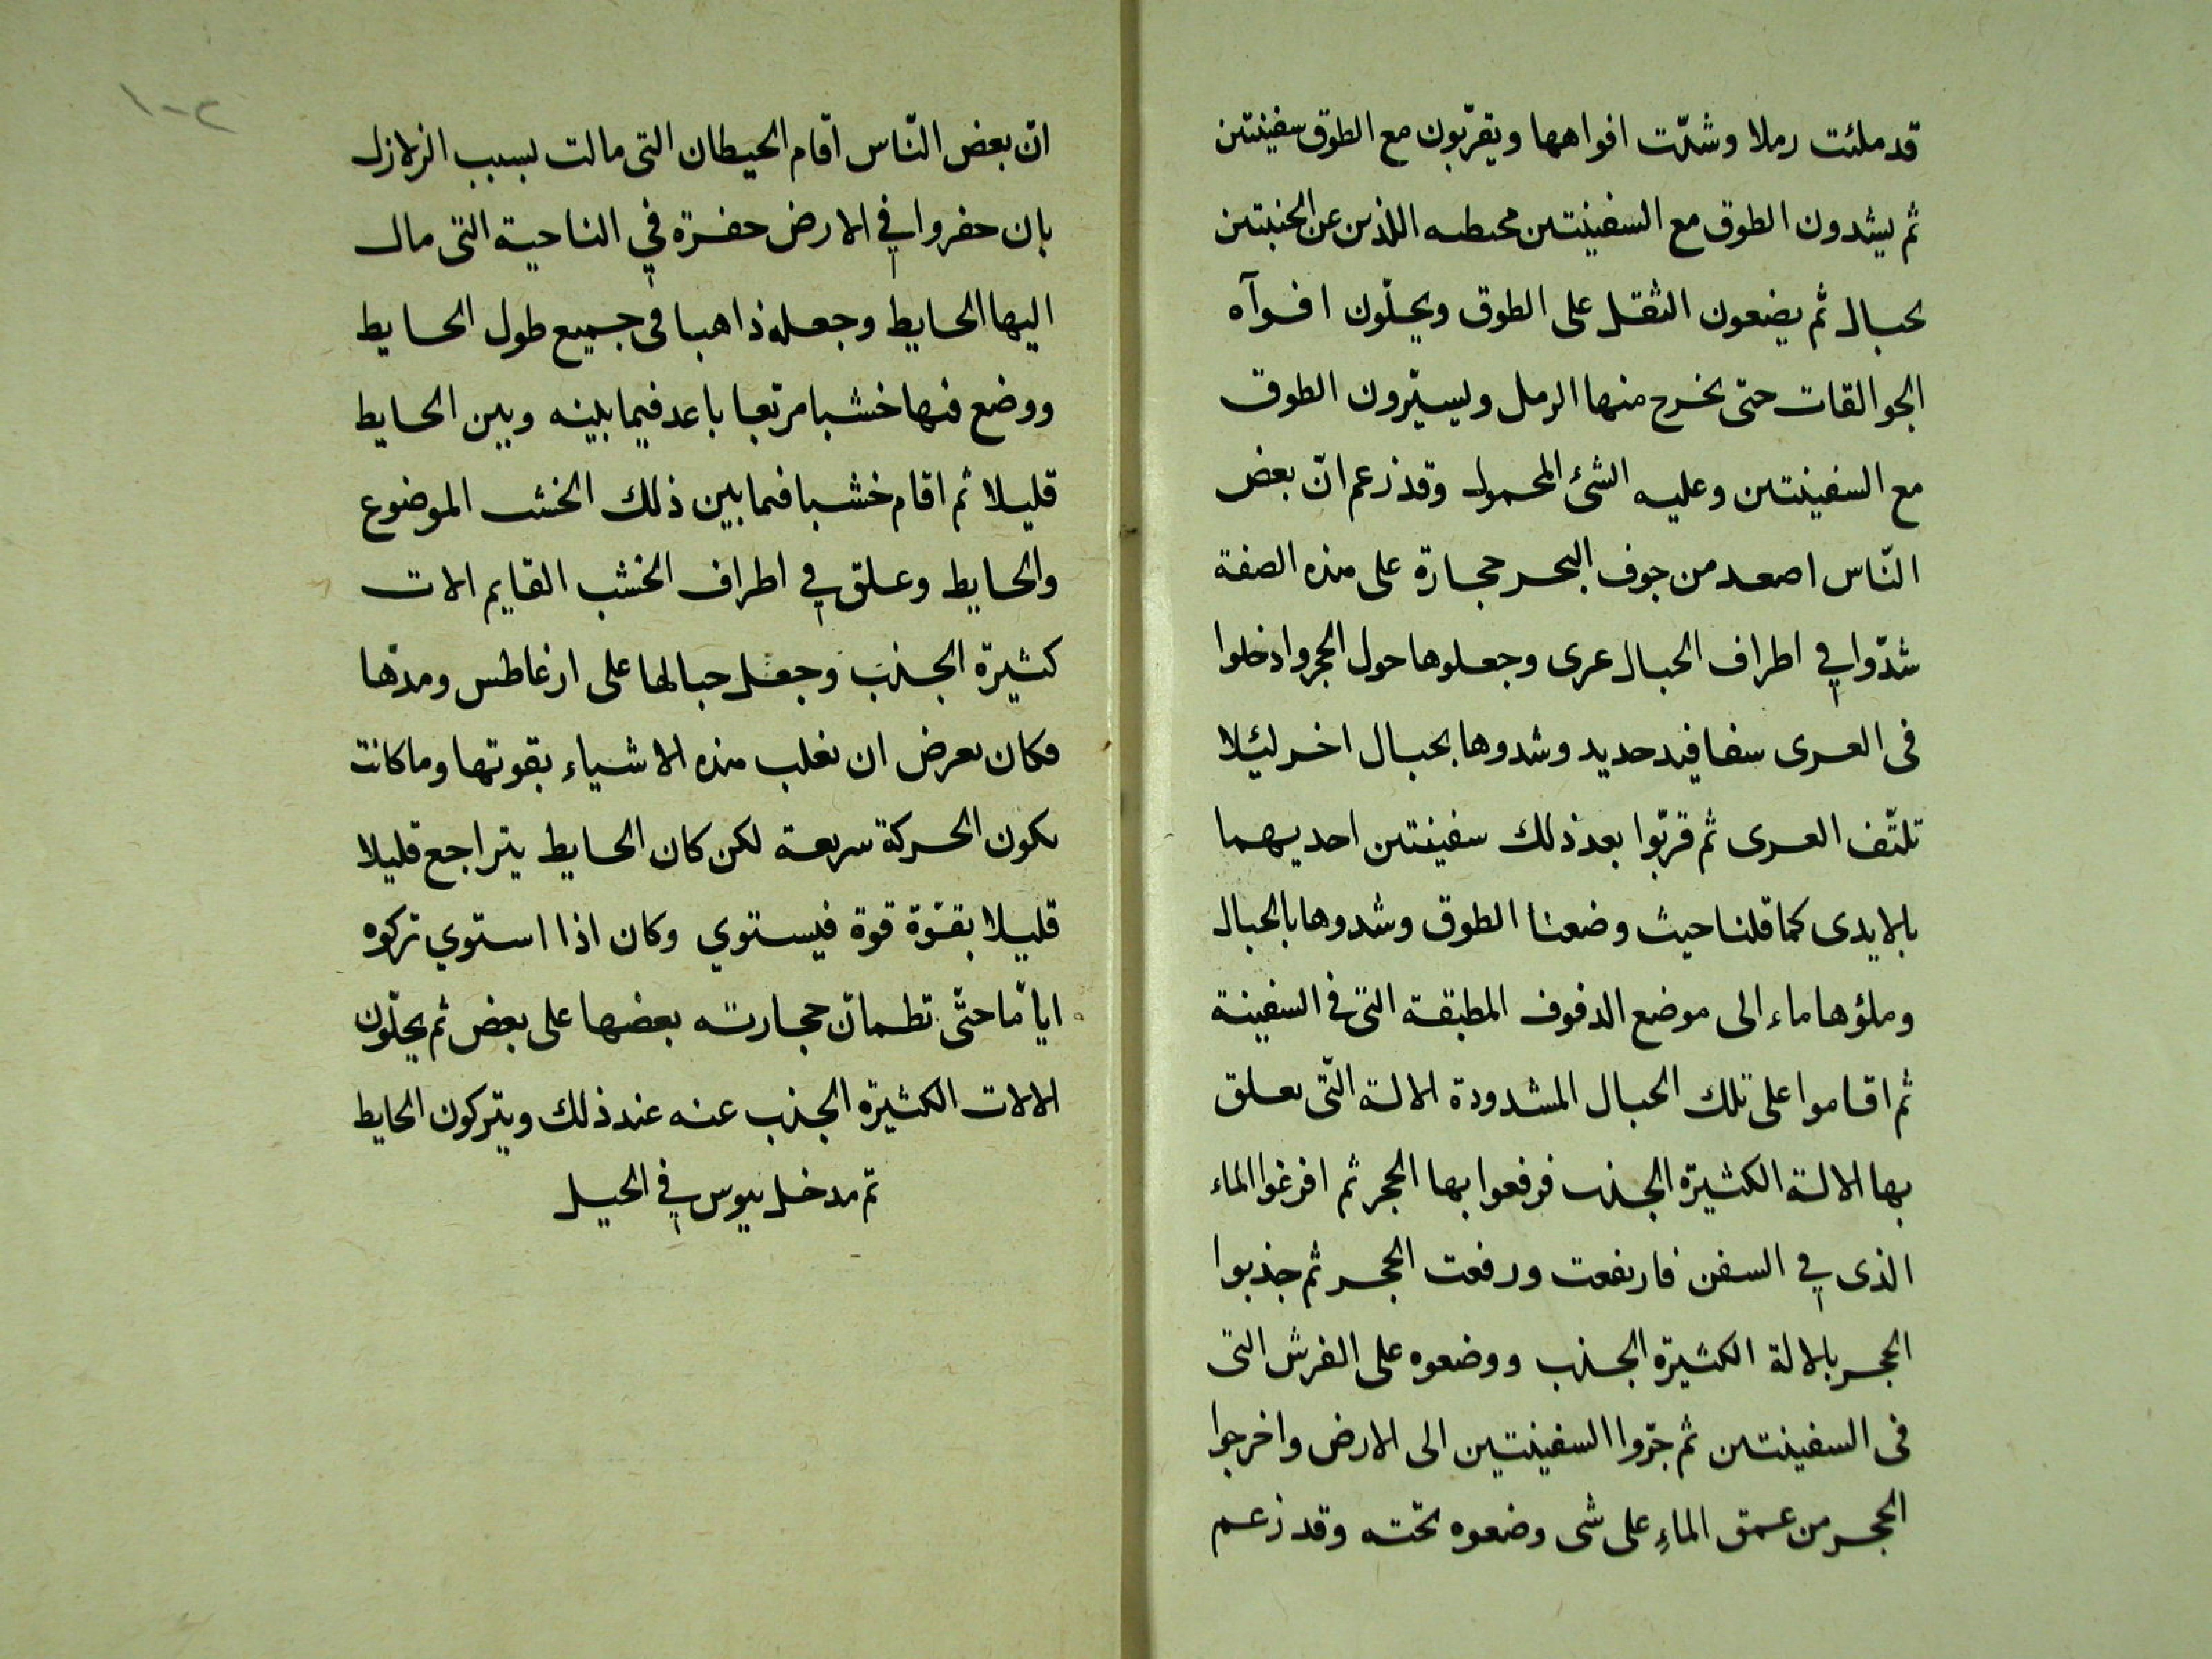 قد ملئت رملا وشدّت افواهها ويقرّبون مع الطوق سفينتين
ثم يشدون الطوق مع السفينتين اللذين عن الجنبتين
بحبال ثم يضعون الثقل على الطوق ويحلّون افوآه
الجوالقات حتى يخرج منها الرمل ويسيّرون الطوق
مع السفينتين وعليه الشئ المحمول وقد زعم انّ بعض
النّاس اصعد من جوف البحر حجارة على هذه الصفة
شدّوا في اطراف الحبال عرى وجعلوها حول الحجر وادخلوا
فى العرى سفافيد حديد وشدوها بحبال اخر لئيلا
تلتّف العرى ثم قربّوا بعد ذلك سفينتين احديهما
بالايدى كما قلنا حيث وضعنا الطوق وشدوها بالحبال
وملؤها ماء الى موضع الدفوف المطبقة التى فى السفينة
ثم اقاموا على تلك الحبال المشدودة الالة التّى يعلق
بها الالة الكثيرة الجذب فرفعوا بها الحجر ثم افرغوا الماء
الذى في السفن فارتفعت ورفعت الحجر ثم جذبوا
الحجر بالالة الكثيرة الجذب ووضعوه على الفرش التى
فى السفينتين ثم جرّوا السفينتين الى الارض واخرجوا
الحجر من عمق الماءِ على شى وضعوه تحته وقد زعم
١٠٢
انّ بعض النّاس اقام الحيطان التى مالت بسبب الزلازل
بان حفروا في الارض حفرة في الناحية التى مال
اليها الحايط وجعله ذاهبا فى جميع طول الحايط
ووضع فيها خشبا مربّعا باعد فيما بينه وبين الحايط
قليلا ثم اقام خشبا فيما بين ذلك الخشب الموضوع
والحايط وعلق في اطراف الخشب القايم الات
كثيرة الجذب وجعل حبالها على ارغاطس ومدّها
فكان يعرض ان تغلب هذه الاشياء بقوتها وما كانت
يكون الحركة سريعة لكن كان الحايط يتراجع قليلا
قليلا بقوّة قوة فيستوي وكان اذا استوي تركوه
ايّاما حتّى تطمانّ حجارته بعضها على بعض ثم يحلّون
الالات الكثيرة الجذب عنه عند ذلك ويتركون الحايط
تمّ مدخل في الحيل